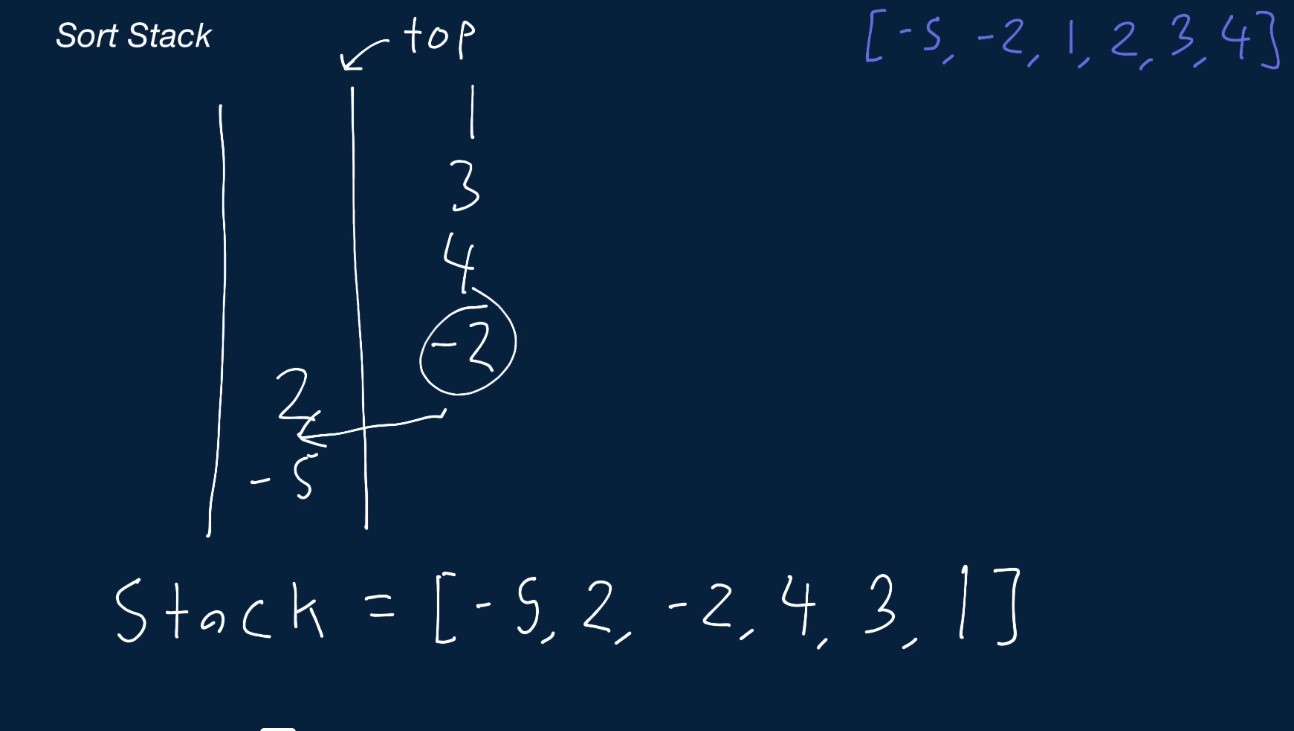 Sort Stack
top
[-5, -2, 1, 2, 3, 4]
1
3
4
-2
2
-5
Stack = [-5, 2, -2, 4, 3, 1]